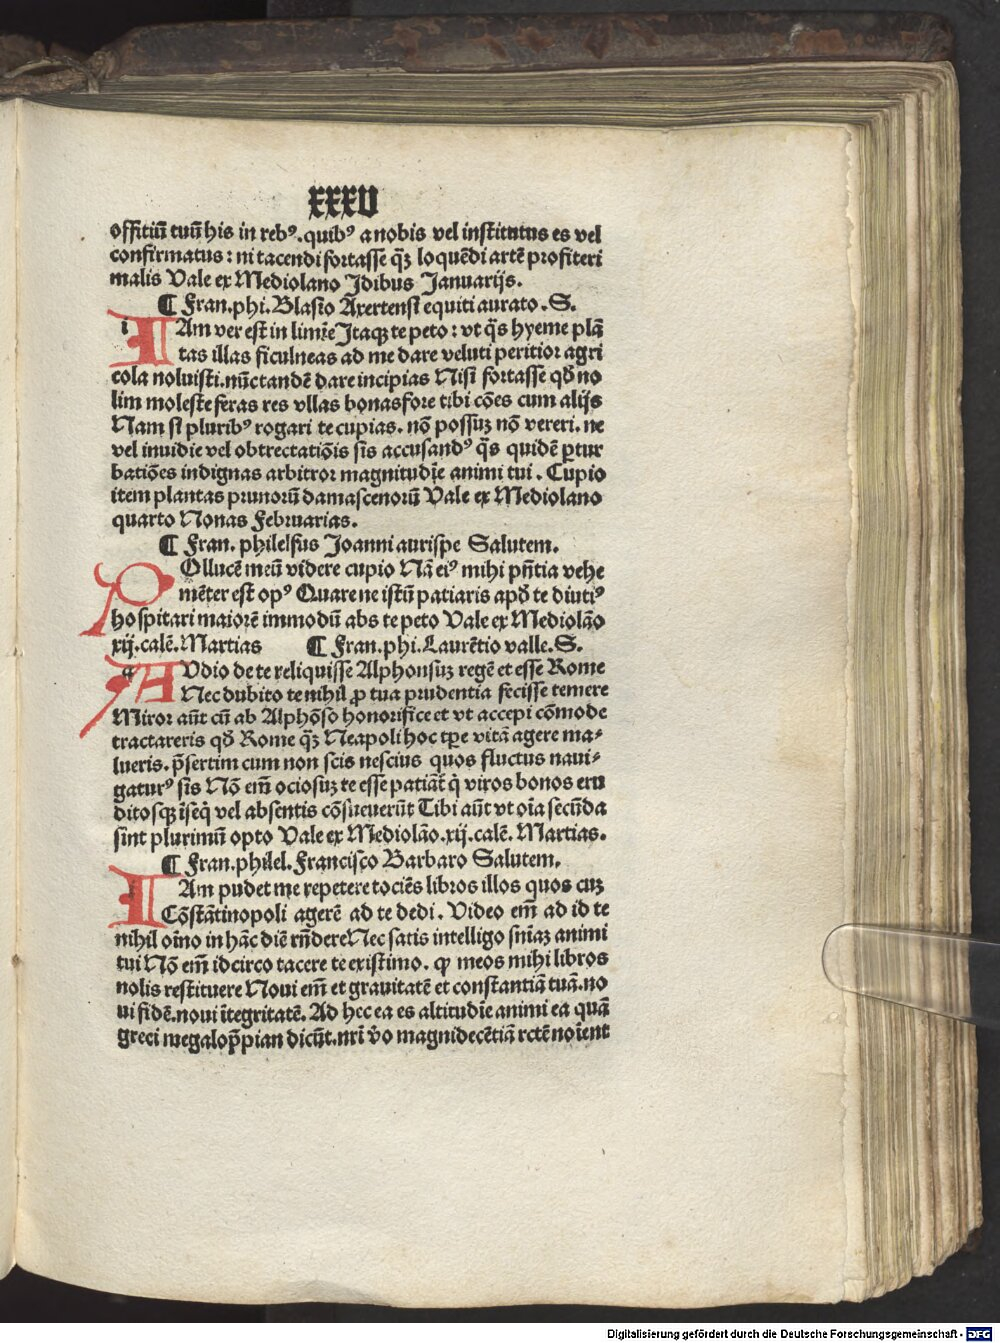 XXXV
offitiū tuū his in rebꝰ. quibꝰ a nobis vel institutus es vel
confirmatus: ni tacendi fortasse qꝫ loquēdi artē profiteri
malis Vale ex Mediolano Idibus Januarijs.
¶ Fran. phi. Blasio Axertensi equiti aurato. S.
IAm ver est in limīe Itaqꝫ te peto: vt q̄s hyeme plā
tas illas ficulneas ad me dare veluti peritior agri
cola noluisti. nūc tandē dare incipias Nisi fortasse qd̄ no
lim moleste feras res vllas bonas fore tibi cōes cum alijs
Nam si pluribꝰ rogari te cupias. nō possuꝫ nō vereri. ne
vel inuidie vel obtrectatiōis sis accusandꝰ q̄s quidē ꝑtur
batiōes indignas arbitror magnitudīe animi tui. Cupio
item plantas prunorū damascenorū Vale ex Mediolano
quarto Nonas Februarias.
¶ Fran. philelfus Joanni aurispe Salutem.
POllucē meū videre cupio Nā eiꝰ mihi pn̄tia vehe
mēter est opꝰ Quare ne istū patiaris apd̄ te diutiꝰ
hospitari maiorē immodū abs te peto Vale ex Mediolāo
xij. calē. Martias ¶ Fran. phi. Laurētio valle. S.
AVdio de te reliquisse Alphonsuꝫ regē et esse Rome
Nec dubito te nihil ꝓ tua prudentia fecisse temere
Miror aūt cū ab Alphōso honorifice et vt accepi cōmode
tractareris qd̄ Rome qꝫ Neapoli hoc tpe vitā agere ma-
lueris. p̄sertim cum non scis nescius quos fluctus naui-
gaturꝰ sis Nō em̄ ociosuꝫ te esse patiāt̄ q̄ viros bonos eru
ditosqꝫ īseq̄ vel absentis cōsueuerūt Tibi aūt vt oīa secūda
sint plurimū opto Vale ex Mediolāo. xij. calē. Martias.
¶ Fran. philel. Francisco Barbaro Salutem.
IAm pudet me repetere tociēs libros illos quos cuꝫ
Cōstātinopoli agerē ad te dedi. Video em̄ ad id te
nihil oīno in hāc diē rn̄dere Nec satis intelligo sn̄iaꝫ animi
tui Nō em̄ idcirco tacere te existimo. ꝙ meos mihi libros
nolis restituere Noui em̄ et grauitatē et constantiā tuā. no
ui fidē. noui ītegritatē. Ad hec ea es altitudīe animi ea quā
greci megalop̄pian dicūt. nr̄i v̄o magnidecētiā rctē noīent
Digitalisierung gefördert durch die Deutsche Forschungsgemeinschaft - DFG